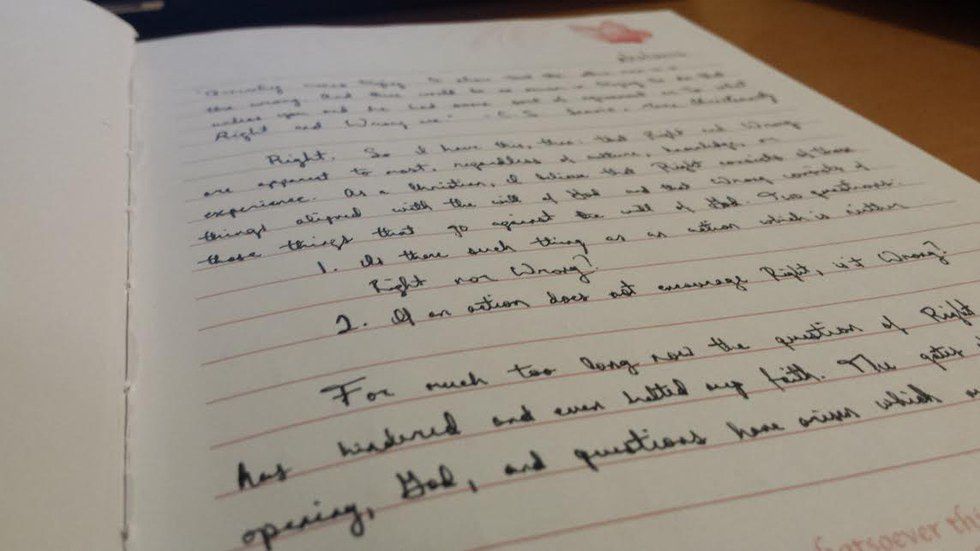 "Quarreling means trying to show that the other man is in
the wrong. And there would be no sense in trying to do that
unless you and he had some sort of agreement as to what
Right and Wrong are." - C.S. Lewis, Mere Christianity
Right. So I have this, then: that Right and Wrong
are apparent to most, regardless of culture, knowledge, or
experience. As a Christian, I believe that Right consists of those
things aligned with the will of God and that Wrong consists of
those things that go against the will of God. Two questions.
1. Is there such thing as an action which is neither
Right nor Wrong?
2. If an action does not encourage Right, is it Wrong?
For much too long now the question of Right
has hindered and even halted my faith. The gates
opening, God, and questions have arisen which
hatsoever thi